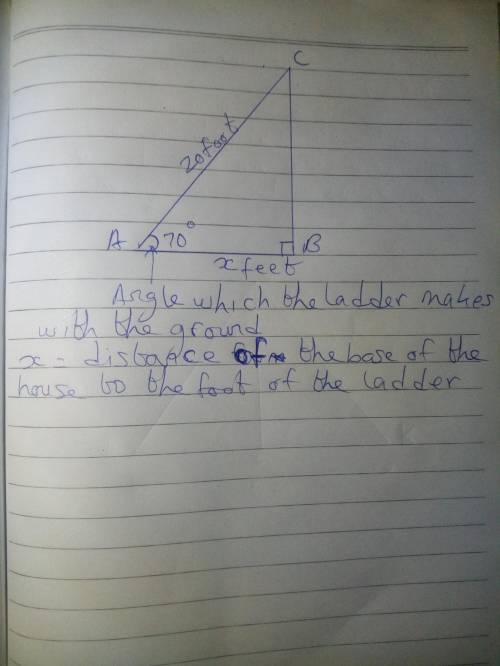 C
20foot
A 70° B
x feet
Angle which the ladder makes
with the ground
x - distance of the base of the
house to the foot of the ladder